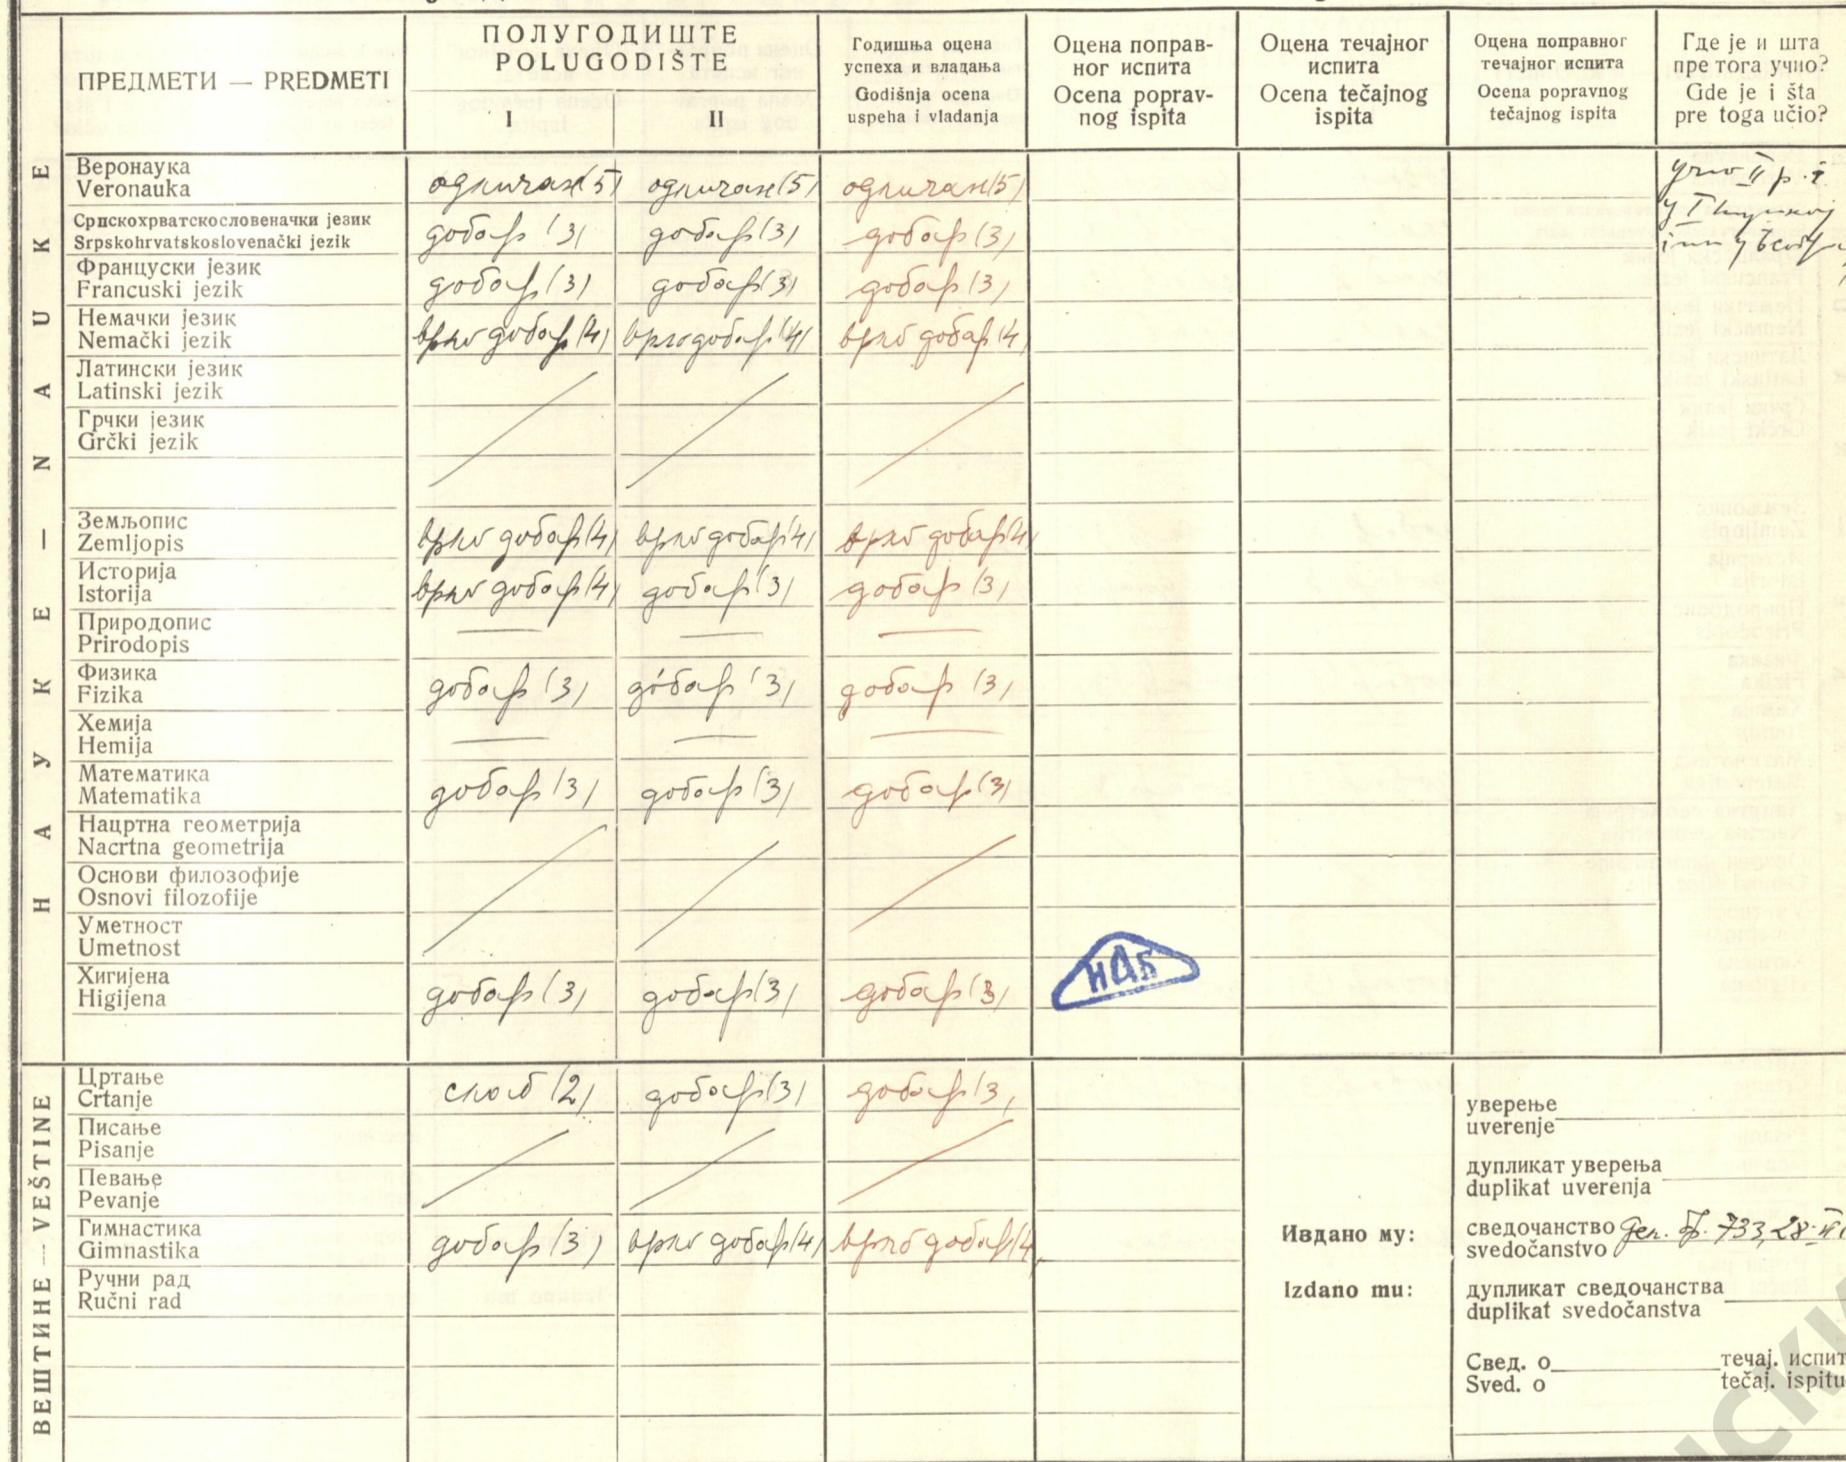 ПРЕДМЕТИ — PREDMETI
ПОЛУГОДИШТЕ
POLUGODIŠTE
I II
Годишња оцена
успеха и владања
Godišnja ocena
uspeha i vladanja
Оцена поправ-
ног испита
Ocena poprav-
nog ispita
Оцена течајног
испита
Ocena tečajnog
ispita
Оцена поправног
течајног испита
Ocena popravnog
tečajnog ispita
Где је и шта
пре тога учио?
Gde je i šta
pre toga učio?
НАУКЕ — NAUKE
Веронаука
Veronauka
одличан (5) одличан (5) одличан (5)
Српскохрватскословеначки језик
Srpskohrvatskoslovenački jezik
добар (3) добар (3) добар (3)
Француски језик
Francuski jezik
добар (3) добар (3) добар (3)
Немачки језик
Nemački jezik
врло добар (4) врло добар (4) врло добар (4)
Латински језик
Latinski jezik
Грчки језик
Grčki jezik
Земљопис
Zemljopis
врло добар (4) врло добар (4) врло добар (4)
Историја
Istorija
врло добар (4) добар (3) добар (3)
Природопис
Prirodopis
Физика
Fizika
добар (3) добар (3) добар (3)
Хемија
Hemija
Математика
Matematika
добар (3) добар (3) добар (3)
Нацртна геометрија
Nacrtna geometrija
Основи филозофије
Osnovi filozofije
Уметност
Umetnost
Хигијена
Higijena
добар (3) добар (3) добар (3)
ВЕШТИНЕ — VEŠTINE
Цртање
Crtanje
слаб (2) добар (3) добар (3)
Писање
Pisanje
Певање
Pevanje
Гимнастика
Gimnastika
добар (3) врло добар (4) врло добар (4)
Ручни рад
Ručni rad
Издано му:
Izdano mu:
уверење
uverenje
дупликат уверења
duplikat uverenja
сведочанство
svedočanstvo
733, 28
дупликат сведочанства
duplikat svedočanstva
Свед. о течај. испит
Sved. o tečaj. ispitu